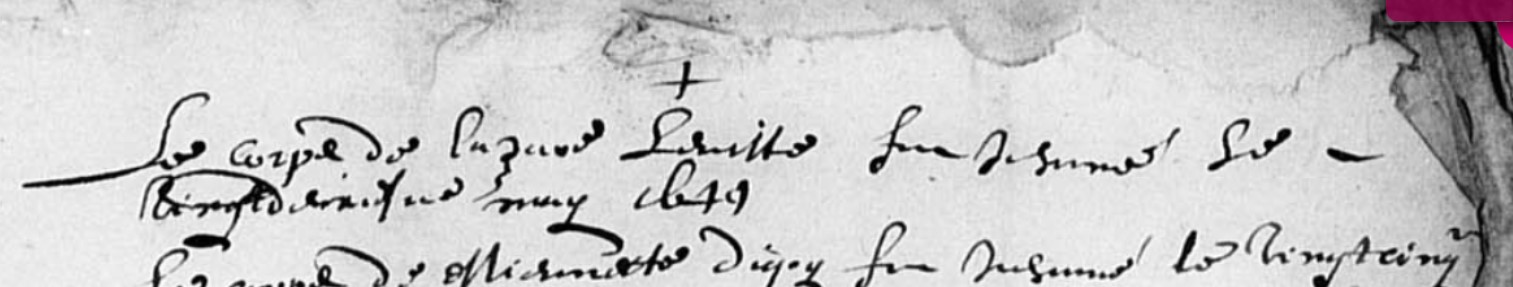 +
Le corps de lazare Leuitte fut Inhumé Le
Vingtdeuxiesme may 1649
Le corps de fut Inhumé le vingtcinq